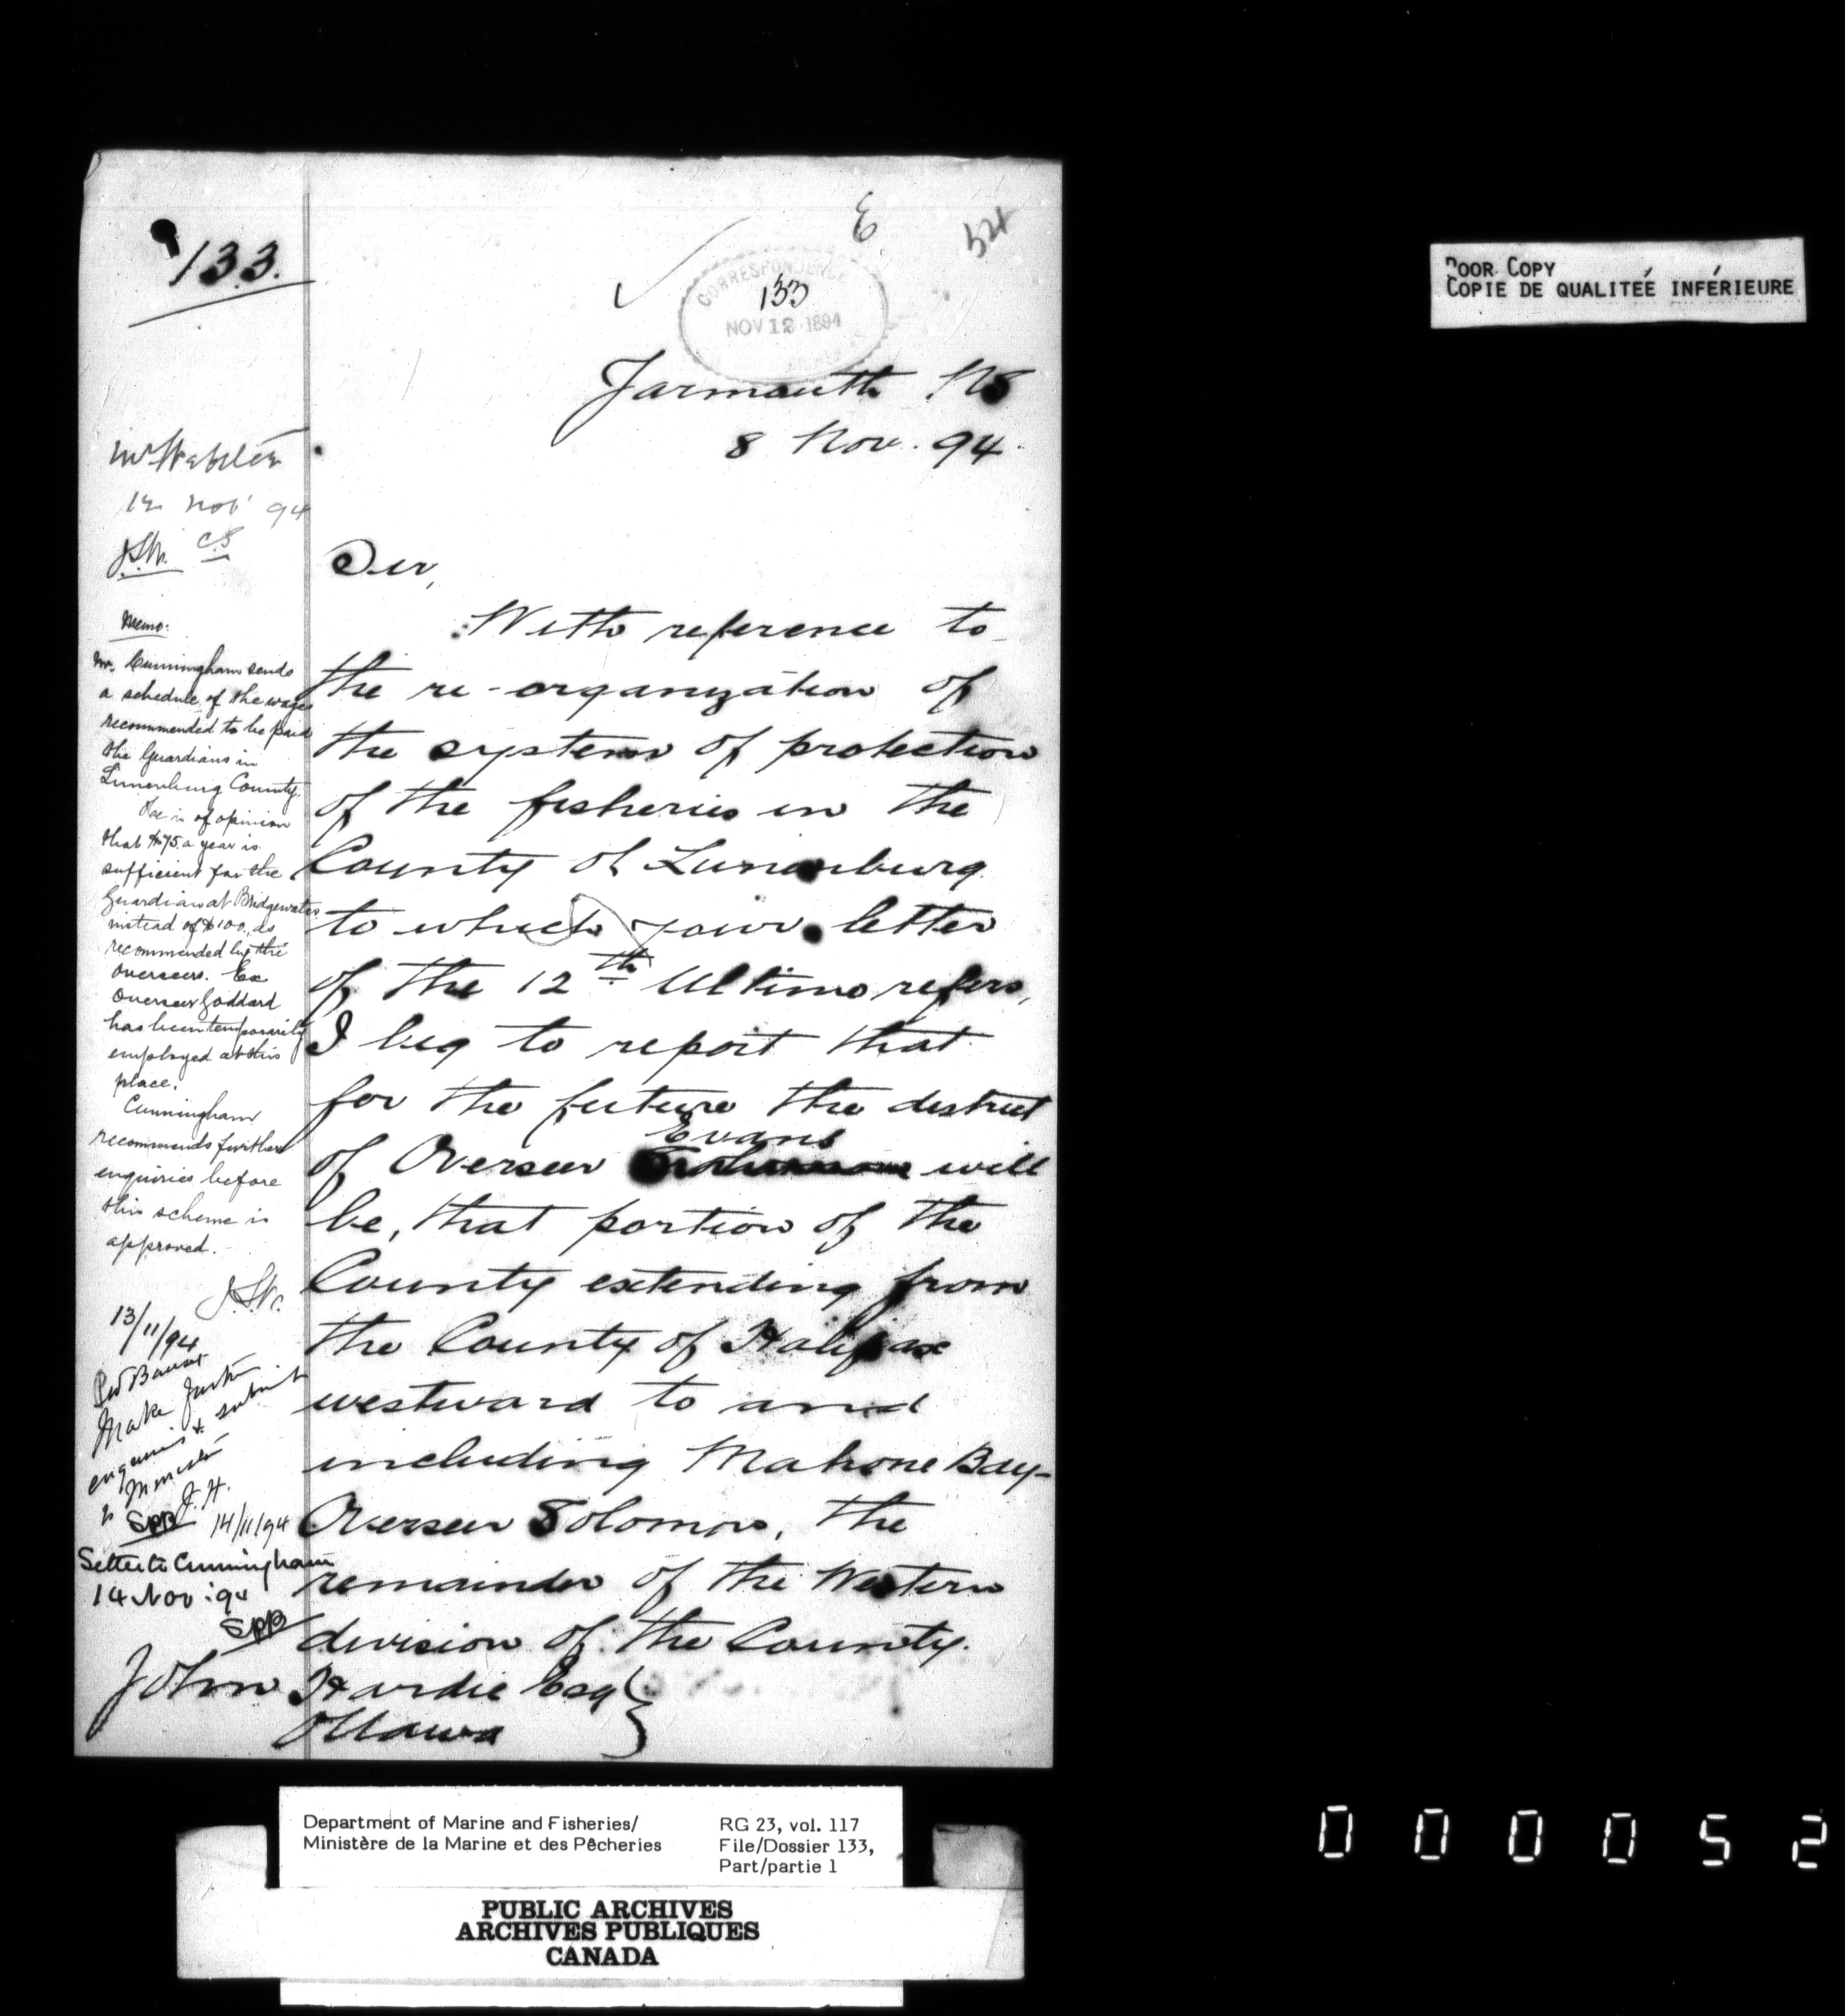 133.
E
324
CORRESPONDENCE
133
NOV 12 1894
POOR COPY
COPIE DE QUALITEÉ INFÉRIEURE
Yarmouth NS
8 Nov. 94.
Mr Webster
12 Nov 94
J.S.W. C.S
Memo:
Mr. Cunningham sends
a schedule of the wages
recommended to be paid
the Guardians in
Lunenburg County.
He is of opinion
that $75 a year is
sufficient for the
Guardian at Bridgewater
instead of $100, as
recommended by the
Overseers. Ex
Overseer Goddard
has been temporarily
employed at this
place.
Cunningham
recommends further
enquiries before
this scheme is
approved.
J.S.W.
13/11/94
Make further
enquiries & submit
to Minister
J.H.
SPB 14/11/94
Letter to Cunningham
14 Nov: 94
SPB
Sir,
With reference to
the re-organization of
the system of protection
of the fisheries in the
County of Lunenburg
to which your letter
of the 12th Ultimo refers,
I beg to report that
for the future the district
Evans
of Overseer will
be, that portion of the
County extending from
the County of Halifax
westward to and
including Mahone Bay-
Overseer Solomon, the
remainder of the Western
division of the County.
John Hardie Esq
Ottawa
Department of Marine and Fisheries/
Ministère de la Marine et des Pêcheries
RG 23, vol. 117
File/Dossier 133,
Part/partie 1
PUBLIC ARCHIVES
ARCHIVES PUBLIQUES
CANADA
000052